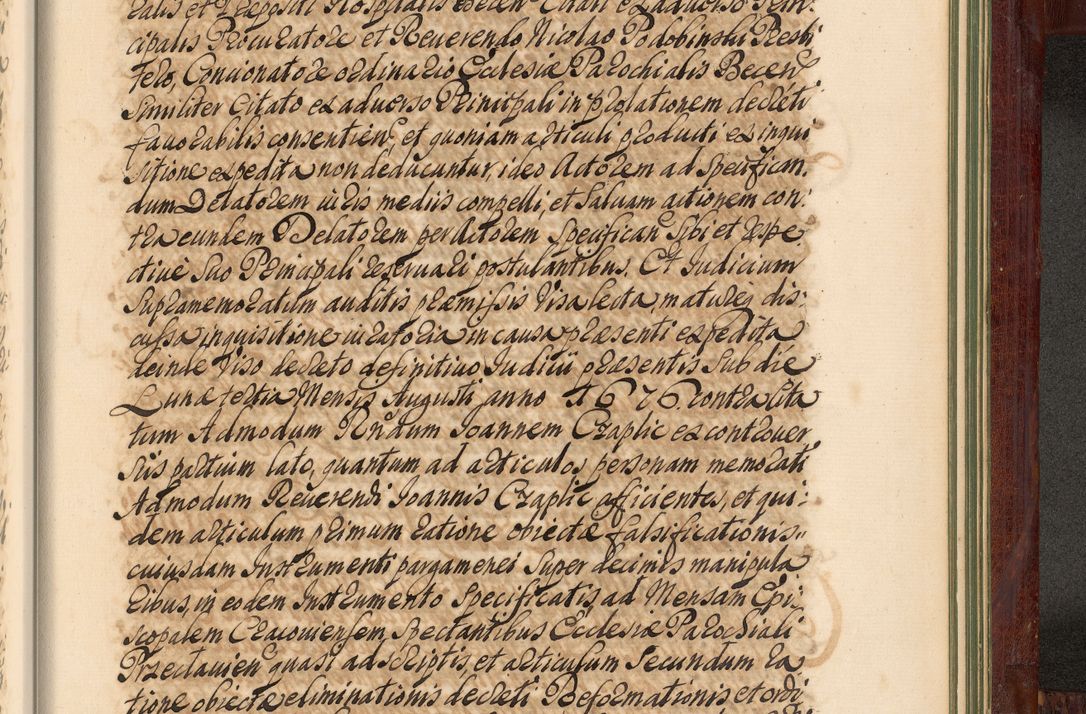 ralis et Præpositi Hospitalis Becen Citati ex adverso Prin:
cipalis Procuratore et Reuerendo Nicolao Podobinski Presbi
tero, Concionatore ordinario Ecclesiæ Parochialis Becen
Similiter Citato ex aduerso Principali in prolationem decreti
fauorabilis consentien, et quoniam articuli producti ex inqui
sitione expedita non deducantur, ideo Actorem ad Specifican,
dum Delatorem iuris mediis compelli, et Saluam actionem con:
tra eundem Delatorem per Actorem Specifican Sibi et respe
ctiue Suo Principali reseruari postulantibus. Et Iudicium
Supramemoratum auditis præmissis Visa lecta, matureq dis:
cussa inquisitione iuratoria in causa præsenti expedita
deinde Viso decreto definitiuo Iudicii præsentis Sub die
Lunæ tertia Mensis Augusti anno 1676. contra Cita
tum Admodum Rndum Ioannem Czaplic ex controuer
siis partium lato, quantum ad articulos personam memorati
Admodum Reuerendi Ioannis Czaplic afficientes, et qui:
dem articulum primum ratione obiectæ falsificationis
cuiusdam Instrumenti pargamenei Super decimis manipula
ribus, in eodem Instrumento Specificatis ad Mensam Epi:
scopalem Cracouiensem, Spectantibus Ecclesiæ Parochiali
Przectauien quasi adscriptis, et articulum Secundum ra
tione obiectæ eliminationis decreti Reformationis et ordi